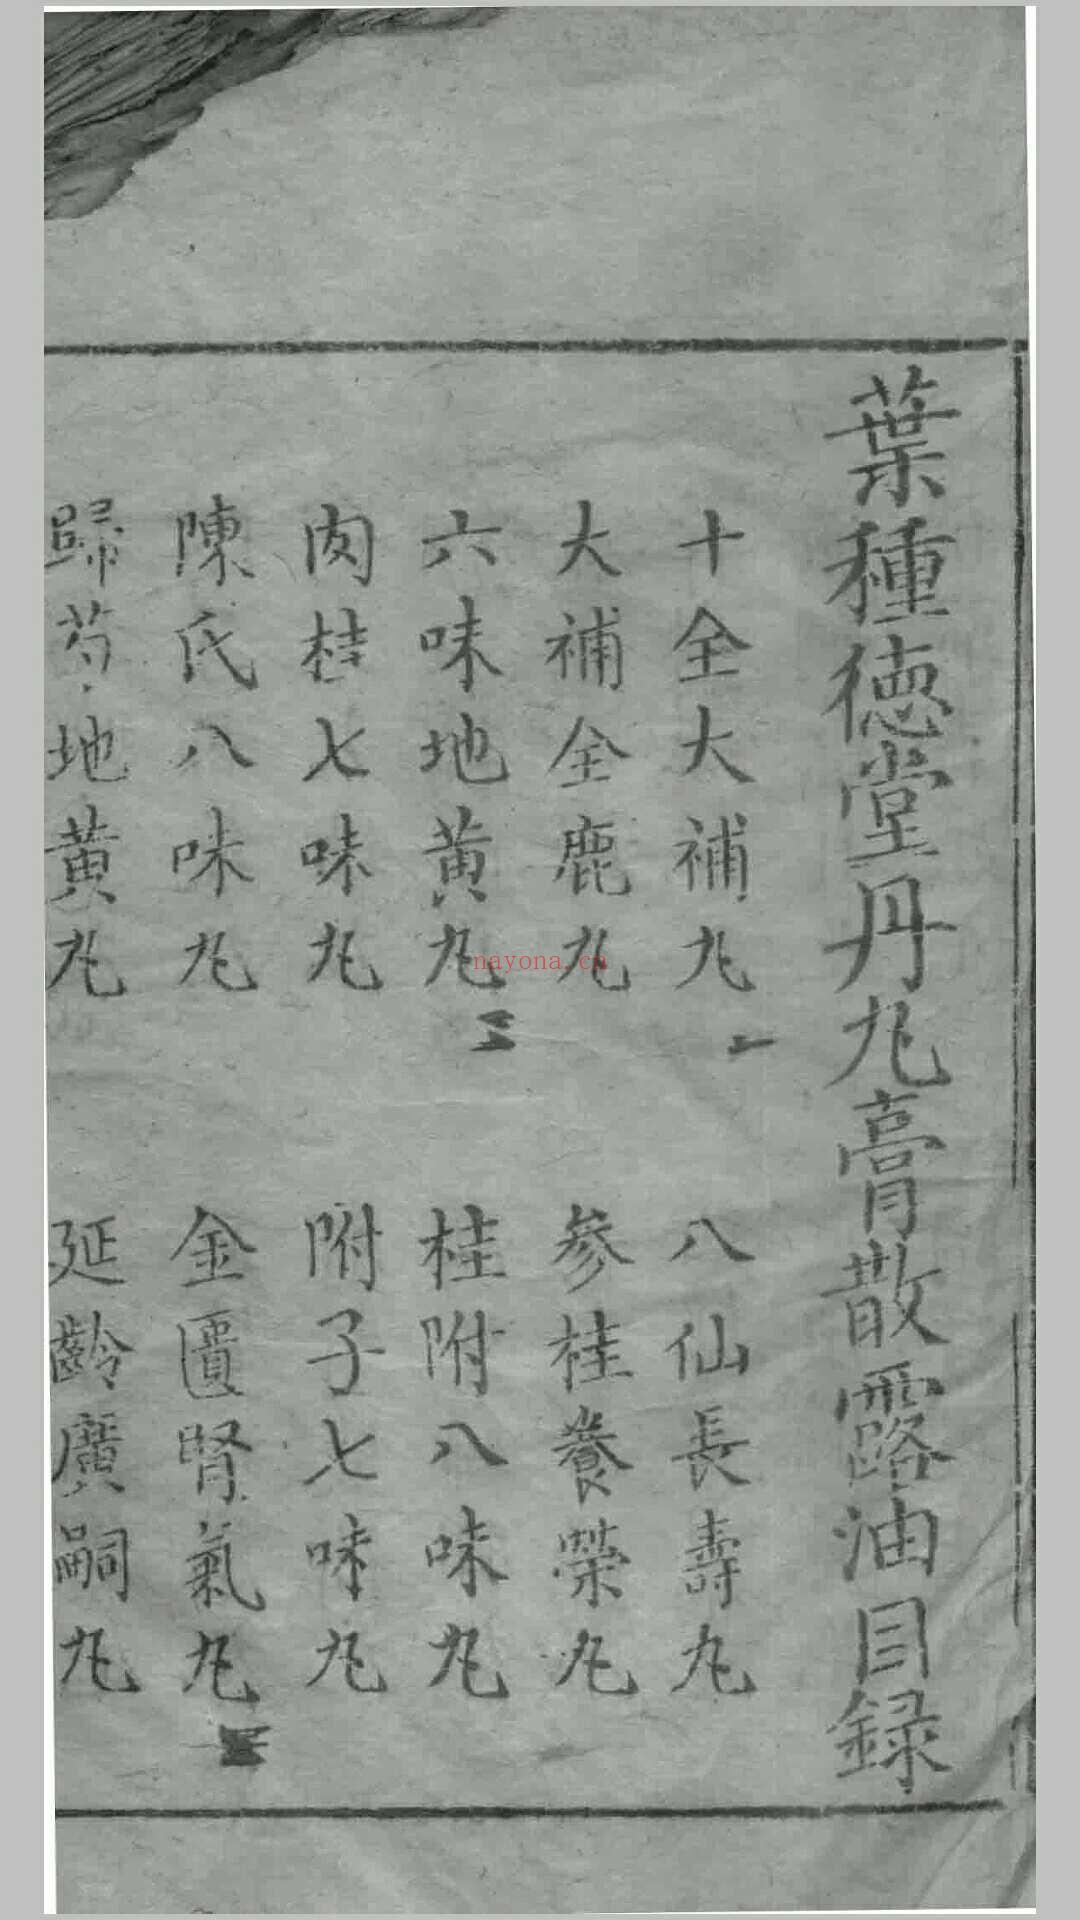 葉種德堂丹丸膏散露油目録
十全大補丸 一
八仙長壽丸
大補全鹿丸
參桂養榮丸
六味地黄丸 三
桂附八味丸
肉桂七味丸
附子七味丸
陳氏八味丸
金匱腎氣丸
歸芍地黄丸
延齡廣嗣丸
nayona.cn